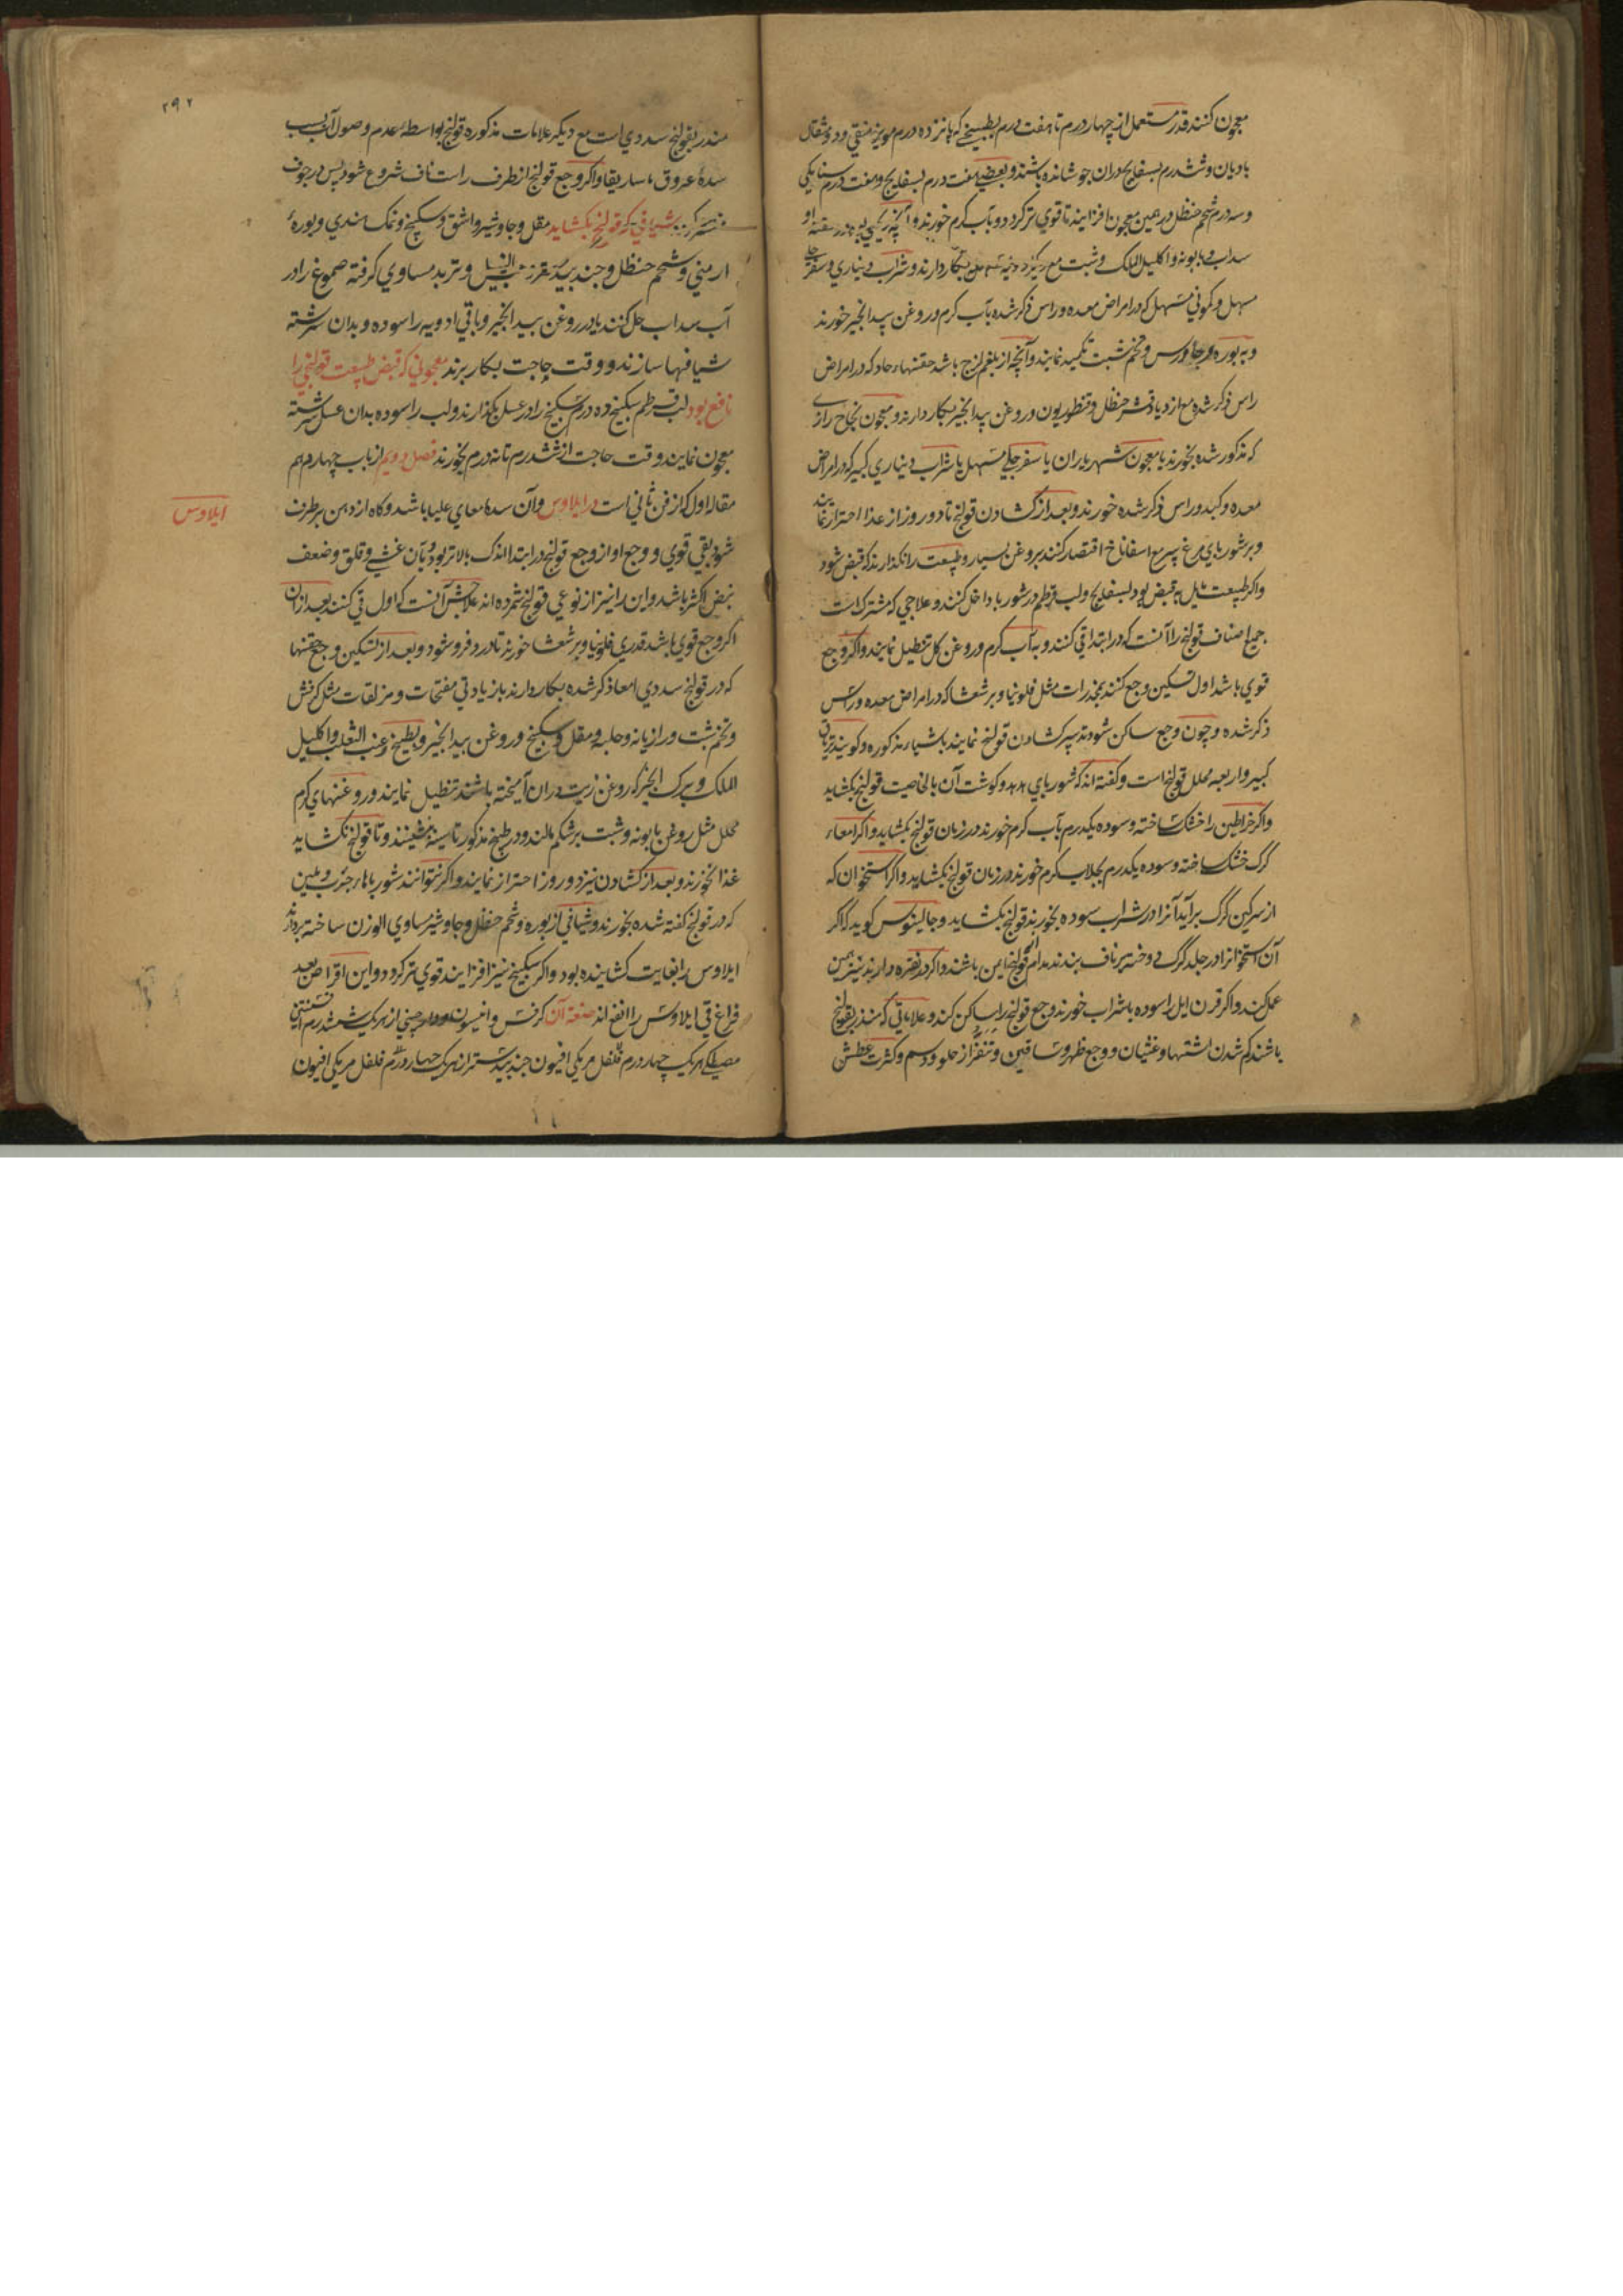 معجون کنند قدر مستعمل از چهار درم تا هفت درم بطبیخی که پانزده درم مویز منقی و دو مثقال
بادیان و شش درم بسفایج دران جوشانده باشند و بعضی هفت درم بسفایج و هفت درم سنا مکی
و سه درم شحم حنظل درین معجون افزایند تا قوی تر کردد و بآب کرم خورند و
سداب و بابونه و اکلیل الملک و شبت مع بکار دارند و شراب دیناری و سفرجلی
مسهل و کمونی مسهل که در امراض معده و راس ذکر شده بآب کرم و روغن بیدانجیر خورند
و به بوره و جاورس و تخم شبت تکمید نمایند و آنچه از بلغم لزج باشد حقنهاء حاد که در امراض
راس ذکر شده مع ازدیاد قشر حنظل و قنطوریون و روغن بیدانجیر بکار دارند و معجون نجاح رازی
که مذکور شده بخورند یا معجون شهریاران یا سفرجلی مسهل یا شراب دیناری کبیر که در امراض
معده و کبد و راس ذکر شده خورند و بعد از کشادن قولنج تا دو روز از غذا احتراز نمایند
و بر شوربای مرغ پیر مع اسفاناخ اقتصار کنند بروغن بسیار و طبیعت را نکذارند که قبض شود
و اکر طبیعت مایل به قبض بود بسفایج و لب قرطم در شوربا داخل کنند و علاجی که مشترکست
جمیع اصناف قولنج را آنست که در ابتدا قی کنند و به آب کرم و روغن کل تنطیل نمایند و اکر وجع
قوی باشد اول تسکین وجع کنند بمخدرات مثل فلونیا و برشعشا که در امراض معده و راس
ذکر شده و چون وجع ساکن شود تدبیر کشادن قولنج نمایند باشیاء مذکوره و کویند تریاق
کبیر و اربعه محلل قولنج است و کفته اند که شوربای هدهد و کوشت آن بالخاصیت قولنج بکشاید
و اکر خراطین را خشک ساخته و سوده یکدرم بآب کرم خورند در زمان قولنج بکشاید و اکر امعاء
کرک خشک ساخته و سوده یکدرم بجلاب کرم خورند در زمان قولنج بکشاید و اکر استخوان که
از سرکین کرک برآید آنرا در شراب سوده بخورند قولنج بکشاید و جالینوس کوید که اکر
آن استخوانرا در جلد کرک دوخته بر ناف بندند مدام از قولنج ایمن باشند و اکر در نقره دارند نیز همین
عمل کند و اکر قرن ایل را سوده با شراب خورند وجع قولنج را ساکن کند و علاماتی که منذر بقولنج
باشند کم شدن اشتها و غثیان و وجع ظهر و ساقین و تنفر از حلو و دسم و کثرت عطش
۲۹۲
منذر بقولنج سددی است مع دیکر علامات مذکوره قولنج بواسطه عدم وصول آب بسبب
سدهٔ عروق ماساریقا و اکر وجع قولنج از طرف راست ناف شروع شود پس در جوف
شیافی که قولنج بکشاید مقل و جاوشیر و اشق و سکبینج و نمک هندی و بورهٔ
ارمنی و شحم حنظل و جندبیدستر حب النیل و تربد مساوی کرفته صموغ را در
آب سداب حل کنند یا در روغن بیدانجیر و باقی ادویه را سوده و بدان سرشته
شیافها سازند و وقت حاجت بکار برند معجونی که قبض طبیعت قولنجی را
نافع بود لب قرطم سکبینج ده درم سکبینج را در عسل بکذارند و لب را سوده بدان عسل سرشته
معجون نمایند وقت حاجت از شش درم تا نه درم بخورند فصل دویم از باب چهاردهم
مقاله اول که از فن ثانی است در ایلاوس و آن سدهٔ امعای علیا باشد و کاه از دهن بر طرف
ایلاوس
شود بقی قوی و وجع او از وجع قولنج در ابتدا اندک بالاتر بود و بآن غشی و قلق و ضعف
نبض اکثر باشد و این را نیز از نوعی قولنج شمرده اند علاجش آنست که اول قی کنند بعد ازان
اکر وجع قوی باشد قدری فلونیا و برشعشا خورند تا درد فرو شود و بعد از تسکین وجع حقنها
که در قولنج سددی امعا ذکر شده بکار دارند با زیادتی مفتحات و مزلقات مثل کرفش
و تخم شبت و رازیانه و حلبه و مقل و سکبینج و روغن بیدانجیر و بطبیخ عنب الثعلب و اکلیل
الملک و برک انجیر که روغن زیت دران آمیخته باشند تنطیل نمایند و روغنهای کرم
محلل مثل روغن بابونه و شبت بر شکم مالند و در طبیخ مذکور تا سینه بنشینند و تا قولنج نکشاید
غذا نخورند و بعد از کشادن نیز دو روز احتراز نمایند و اکر نتوانند شورباهاء چرب و ملین
که در قولنج کفته شده بخورند و شیافی از بوره و شحم حنظل و جاوشیر مساوی الوزن ساخته بردارند
ایلاوس را بغایت کشاینده بود و اکر سکبینج نیز افزایند قوی تر کردد و این اقراص بعد
فراغ قی ایلاوس را انفع اند صنعه آن کرفس و انیسون از هریک شش درم افسنتین
مصطکی هریک چهار درم فلفل مریکی افیون جندبیدستر از هریک چهار درم فلفل مریکی افیون